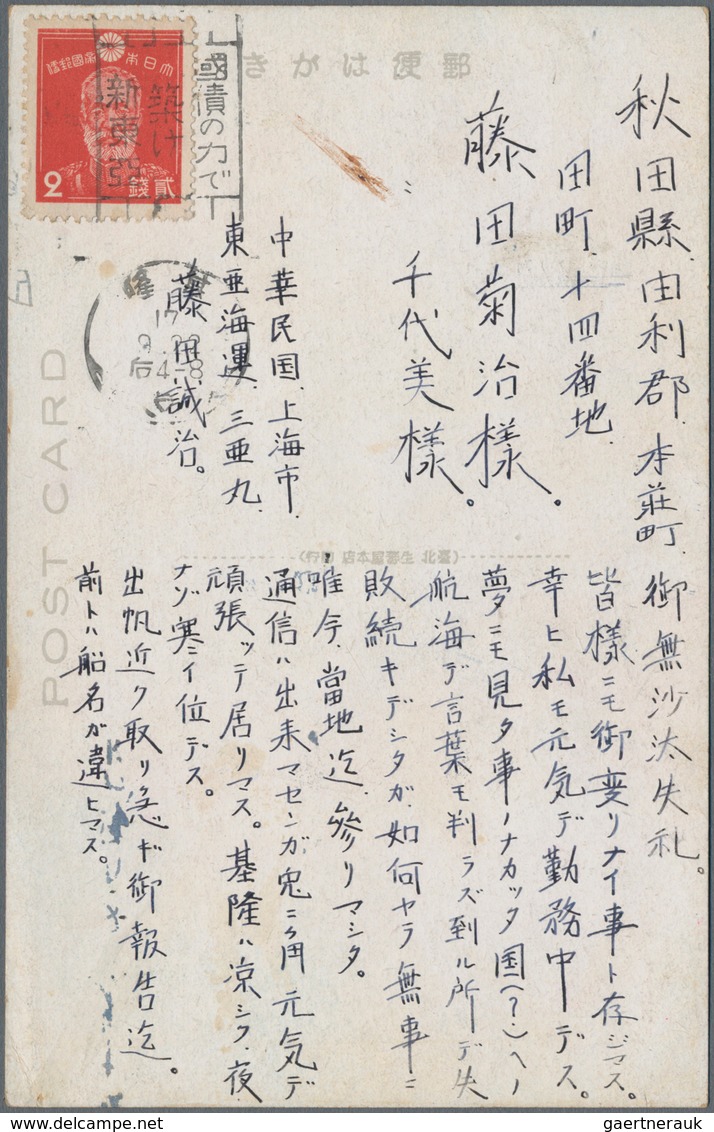 郵便はがき
大日本帝國郵便
貳錢
2
國債の力で
築け
新東亞
隆
17
9.22
后4-8
POST CARD
(臺北 生蕃屋本店 發行)
秋田縣由利郡本莊町
田町十四番地。
藤田菊治様。
〃千代美様。
中華民国上海市
東亜海運三亜丸
藤田誠治。
御無沙汰失礼。
皆様ニモ御変リナイ事ト存ジマス。
幸ヒ私モ元気デ勤務中デス。
夢ニモ見タ事ノナカッタ国(?)ヘノ
航海デ言葉モ判ラズ到ル所デ失
敗続キデシタガ如何ヤラ無事ニ
唯今、當地迄参リマシタ。
通信ハ出来マセンガ兎ニ角元気デ
頑張ッテ居リマス。基隆ハ涼シク、夜
ナゾ寒イ位デス。
出帆近ク取リ急ギ御報告迄。
前トハ船名ガ違ヒマス。
gaertnerauk